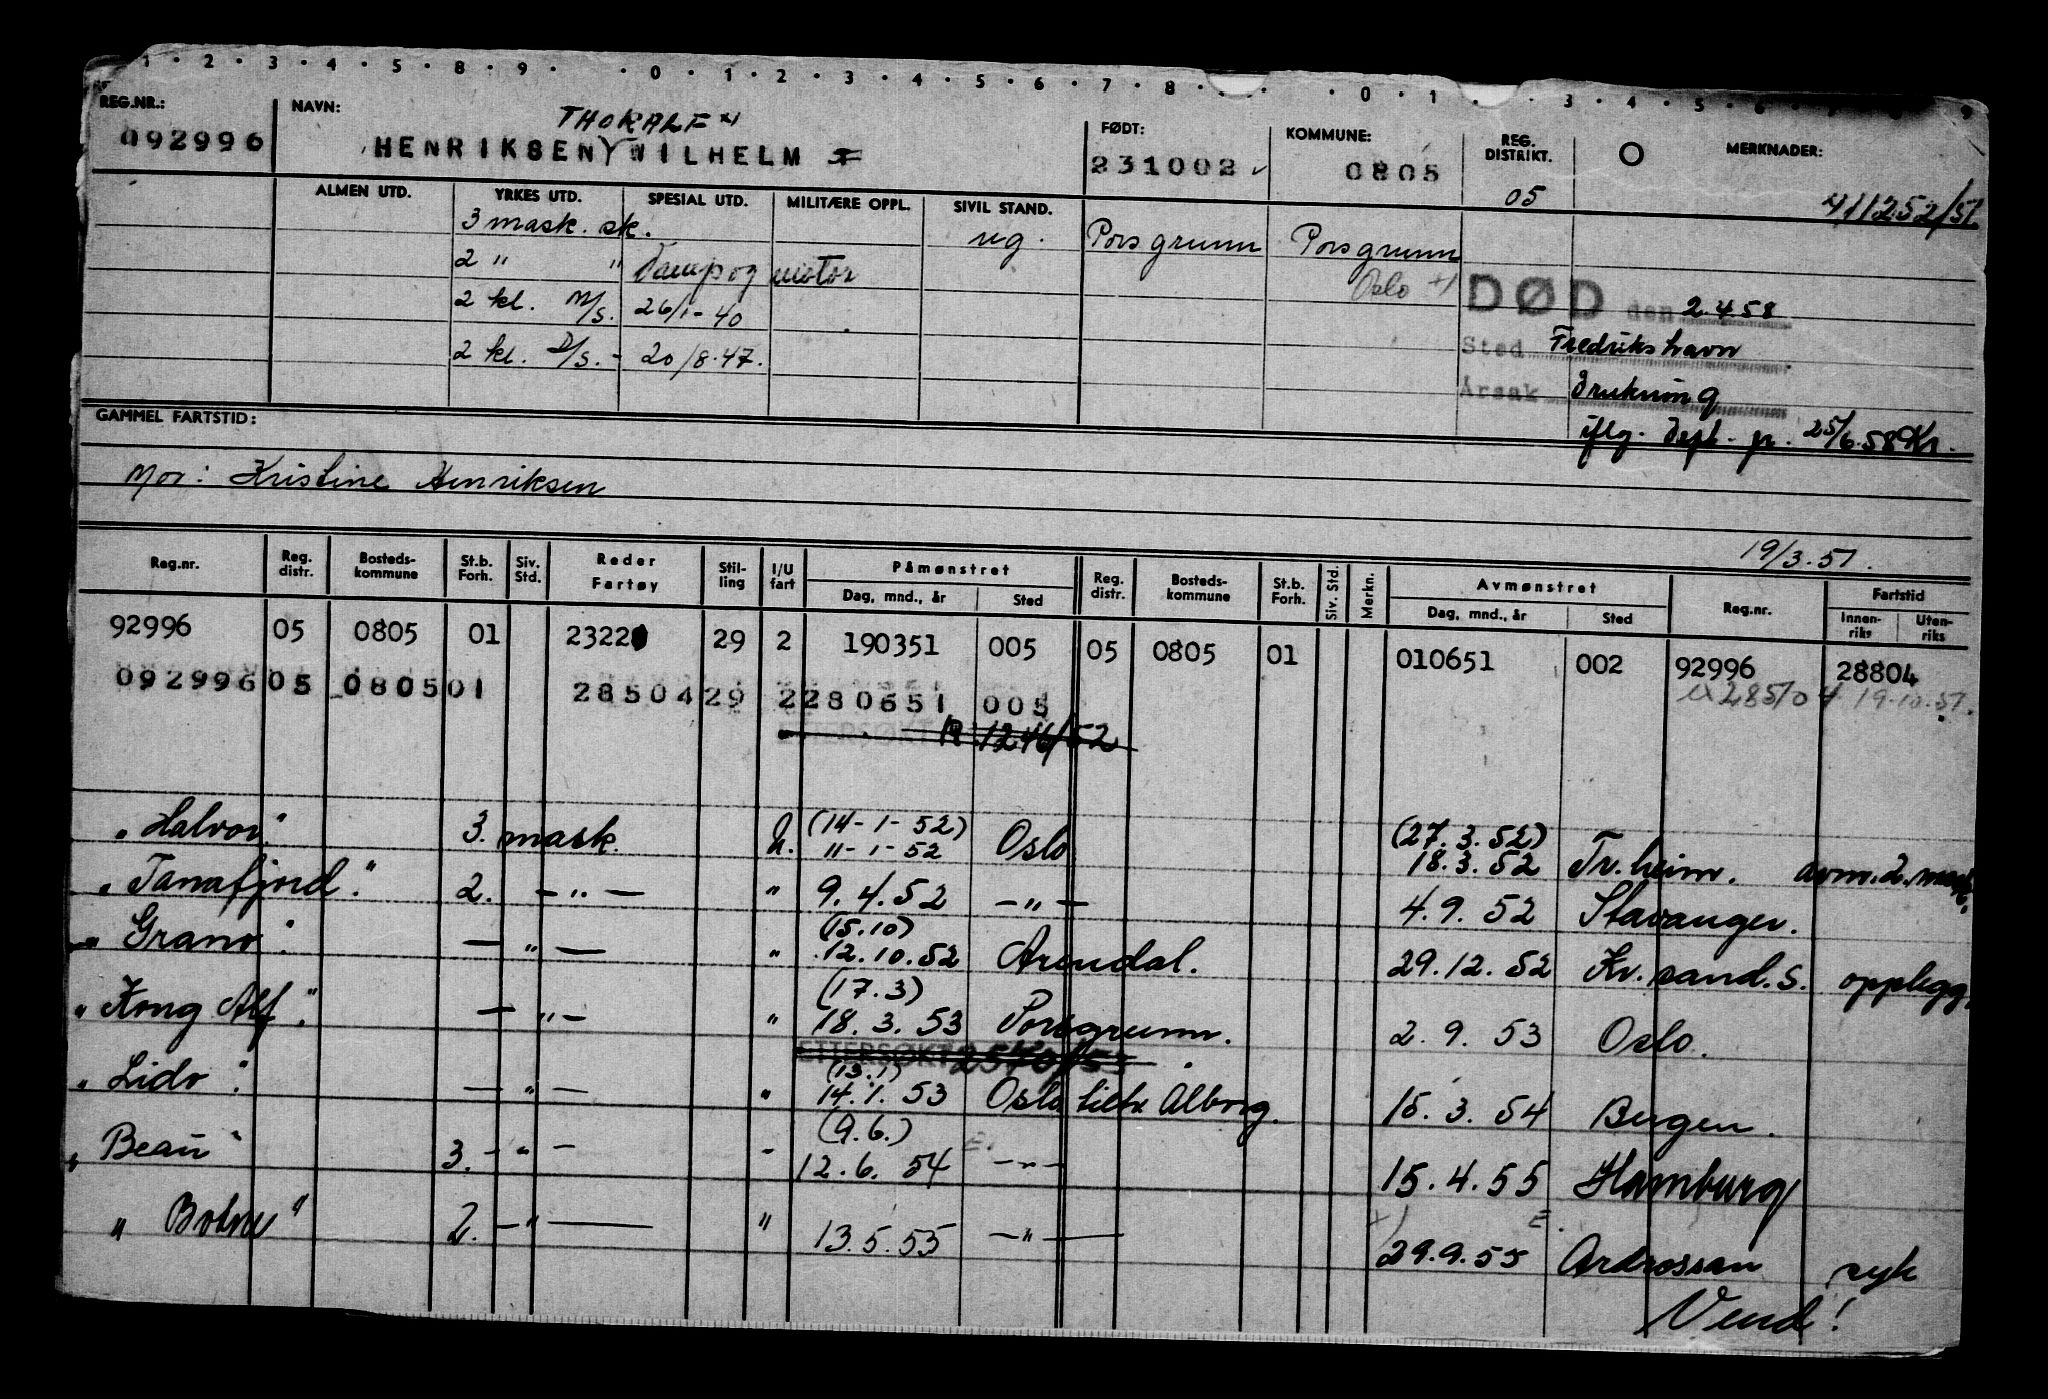 1 · 2 · 3 · 4 · 5 · 8 · 9 · · 0 · 1 · 2 · 3 · 4 · 5 · 6 · 7 · 8 · · · 0 · 1 · · 3 · 4 · 5 · 6 · 7 · 8 · 9
REG.NR.: NAVN: FØDT: KOMMUNE: REG. DISTRIKT. MERKNADER:
THORALF x)
092996 HENRIKSEN WILHELM 231002 0805 05 411252/51
ALMEN UTD. YRKES UTD. SPESIAL UTD. MILITÆRE OPPL. SIVIL STAND.
3 mask. sk. ug. Porsgrunn Porsgrunn
2 " " Damp og motor Oslo x)
DØD den 2.4.58
2 kl. M/S. 26/1-40
Sted Fredrikshavn
2 kl. D/S. - 20/8.47.
Årsak Drukning
GAMMEL FARTSTID: iflg. Dept. jr. 25/6.58 Kr.
Mor: Kristine Henriksen
19/3.51.
Reg.nr. Reg. distr. Bosteds-kommune St.b. Forh. Siv. Std. Reder Fartøy Stil-ling I/U fart Påmønstret Dag, mnd., år Sted Reg. distr. Bosteds-kommune St.b. Forh. Siv. Std. Merkn. Avmønstret Dag, mnd., år Sted Reg.nr. Fartstid Innen-riks Uten-riks
92996 05 0805 01 2322 29 2 190351 005 05 0805 01 010651 002 92996 28804
092996 05 0805 01 28504 29 2 280651 005 28504 19.10.51.
ETTERSØKT 1246/52
(14-1-52) (27.3.52)
"Halvor" 3. mask. U. 11-1-52 Oslo 18.3.52 Tr.heim. avm. 2. mask.
"Tanafjord." 2. -"- " 9.4.52 -"- 4.9.52 Stavanger.
(15.10)
"Grano". -"- " 12.10.52 Arendal. 29.12.52 Kr.sand.S. opplegg.
(17.3)
"Kong Alf". -"- " 18.3.53 Porsgrunn. 2.9.53 Oslo.
ETTERSØKT /53
(13.1)
"Lido". -"- " 14.1.53 Oslo tiltr. Ålborg. 15.3.54 Bergen.
(9.6.)
"Beau" 3. -"- " 12.6.54 -"- 15.4.55 Hamburg
x) E.
" " 2. -"- " 13.5.55 -"- 29.9.55 Ardrossan syk
Vend!